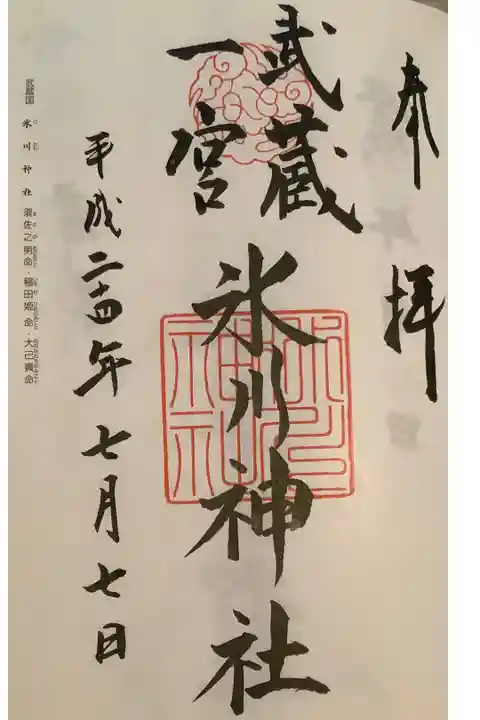 奉拝
武蔵
一宮
氷川神社
平成二十四年七月七日
武蔵国 氷川神社 須佐之男命・稲田姫命・大己貴命